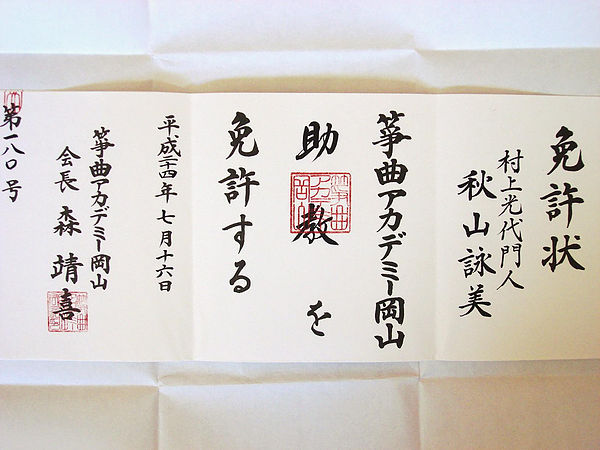 免許状
村上光代門人
秋山詠美
箏曲アカデミー岡山
助教を
免許する
平成二四年七月十六日
箏曲アカデミー岡山
会長 森 靖喜
第一八〇号